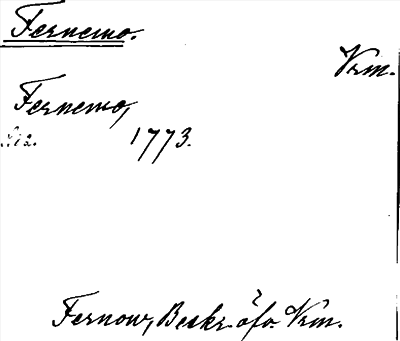 Fernemo.
Vrm.
Fernemo,
1773.
Fernow, Beskr. öfv. Vrm.